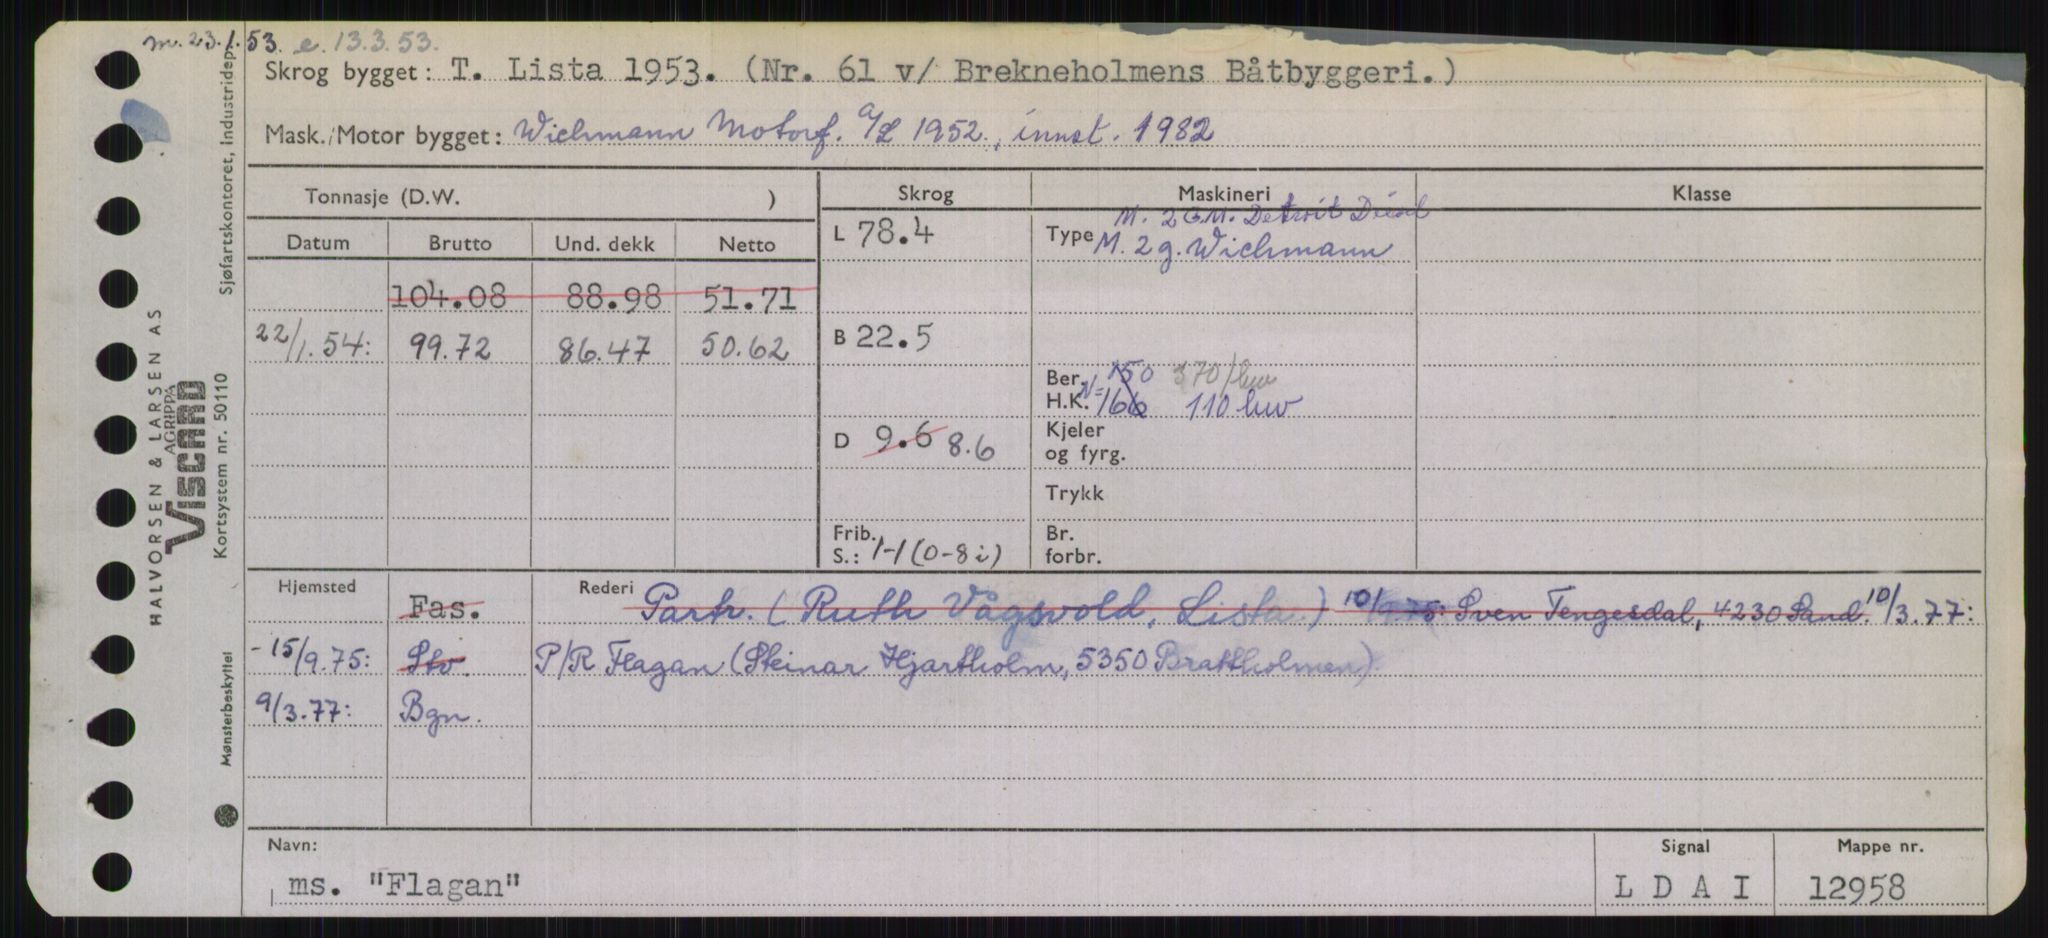 m. 23.1.53. e. 13.3.53.
Skrog bygget: T. Lista 1953. (Nr. 61 v/ Brekneholmens Båtbyggeri.)
Mask./Motor bygget: Wichmann Motorf. A/L 1952., innst. 1982
Tonnasje (D.W. )
Skrog
Maskineri
Klasse
Datum Brutto Und. dekk Netto
L 78.4
M. 2 G.M. Detroit Diesel
Type M. 2 g. Wichmann
104.08 88.98 51.71
22/1.54: 99.72 86.47 50.62
B 22.5
Ber. 150 370/kw
H.K. N= 166 110 kw
D 9.6 8.6
Kjeler
og fyrg.
Trykk
Frib.
S.: 1-1 (0-8 i)
Br.
forbr.
Hjemsted Fas. Rederi Partr. (Ruth Vågsvold, Lista.) 10/9.75: Sven Tengesdal, 4230 Sand. 10/3.77:
-15/9.75: Stv. P/R Flagan (Steinar Hjartholm, 5350 Brattholmen).
9/3.77: Bgn.
Navn:
ms. "Flagan"
Signal
L D A I
Mappe nr.
12958
HALVORSEN & LARSEN AS
AGRIPPA
VISCARD
Kortsystem nr. 50110
Sjøfartskontoret, Industridep.
Mønsterbeskyttet